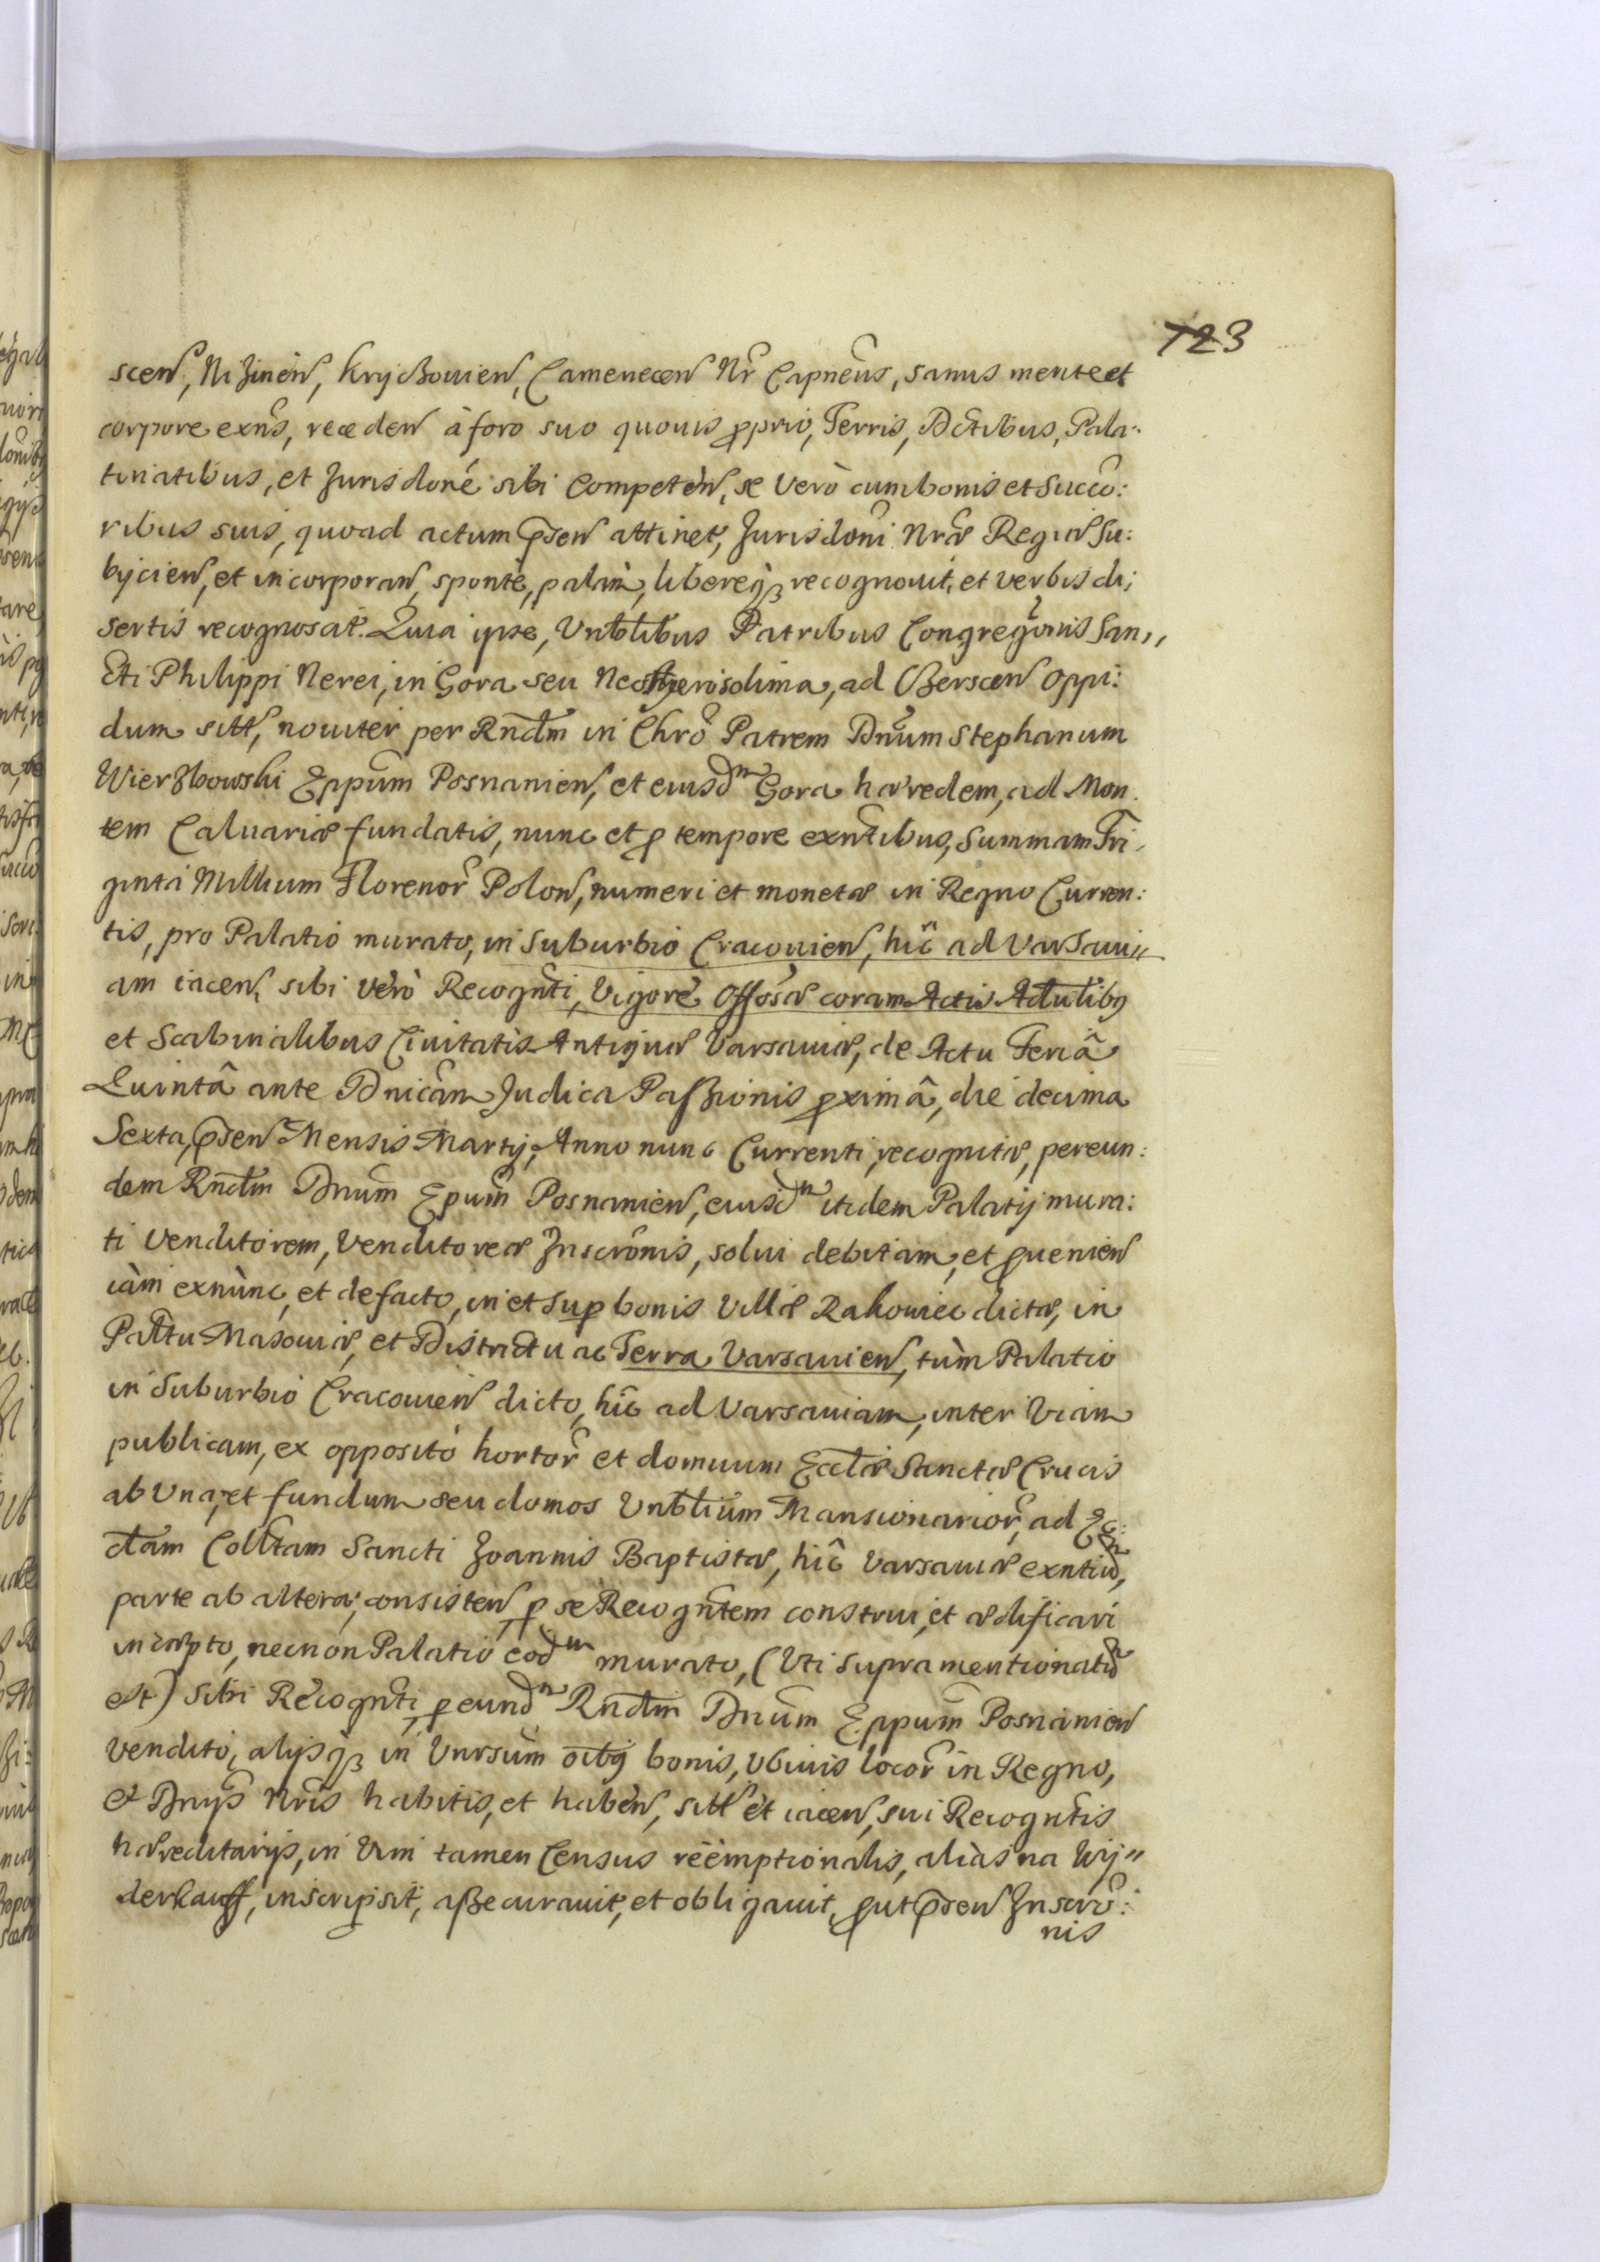 723
scen, Nizinen, Kryczouien, Camenecen Nr Capneus, sanus mente et
corpore exns, receden à foro suo quouis pprio, Terris, Dctibus, Pala-
tinatibus, et Jurisdone sibi Competen, se verò cum bonis et Succo:
ribus suis, quoad actum psen attinet, Jurisdoni Nrae Regiae Su:
bijcien, et incorporan, sponte, palam, libereq3 recognouit, et verbis di;
sertis recognoscit. Quia ipse, Vnblibus Patribus Congregonis San,,
cti Philippi Nerei, in Gora seu Neo Hyerosolima, ad Berscen Oppi:
dum sitt, nouiter per Rndm in Chro Patrem Dnum Stephanum
Wierzbowski Eppum Posnanien, et eiusd m Gora haeredem, ad Mon
tem Caluariae fundatis, nunc et p tempore exntibus, Summam Tri
ginta Millium Florenor Polon, numeri et monetae in Regno Curren:
tis, pro Palatio murato, in Suburbio Cracouien, hic ad Varsaui,,
am iacen, sibi verò Recognti, vigore Offosae coram Actis Actulibg
et Scabinalibus Ciuitatis Antiquae Varsauiae, de Actu Feriâ
Quintâ ante Dnicam Judica Passionis pximâ, die decima
Sexta, psen Mensis Martij, Anno nunc Currenti, recognitae, per eun:
dem Rndm Dnum Epum Posnanien, eiusd m itidem Palatij mura:
ti Venditorem, Venditoreae Inscronis, solui debitam, et puenien
iàm exnùnc, et de facto, in et Sup bonis Villae Rakowiec dictae, in
Palttu Masouiae, et Districtu ac Terra Varsauien, tùm Palatio
in Suburbio Cracouien dicto, hic ad Varsauiam, inter Viam
publicam, ex opposito hortor et domuum Ecclae Sanctae Crucis
ab Vna, et fundum seu domos Vnblium Mansionarior, ad Ec:
clam Colltam Sancti Joannis Baptistae, hic Varsauiae exntiu m,
parte ab altera, consisten, p se Recogntem construi, et aedificari
incaepto, necnon Palatio eod m murato, (Vti supra mentionatu m
est) Sibi Recognti, p eund m Rndm Dnum Eppum Posnanien
Vendito, alijsq3 in Vnrsum oibg bonis, Vbiuis locor in Regno,
et Dnijs Nris habitis, et haben, sitt et iacen, sui Recogntis
haereditarijs, in Vim tamen Census reemptionalis, aliàs na Wy,,
derkauff, inscripsit, assecurauit, et obligauit, put psen Inscro:
nis